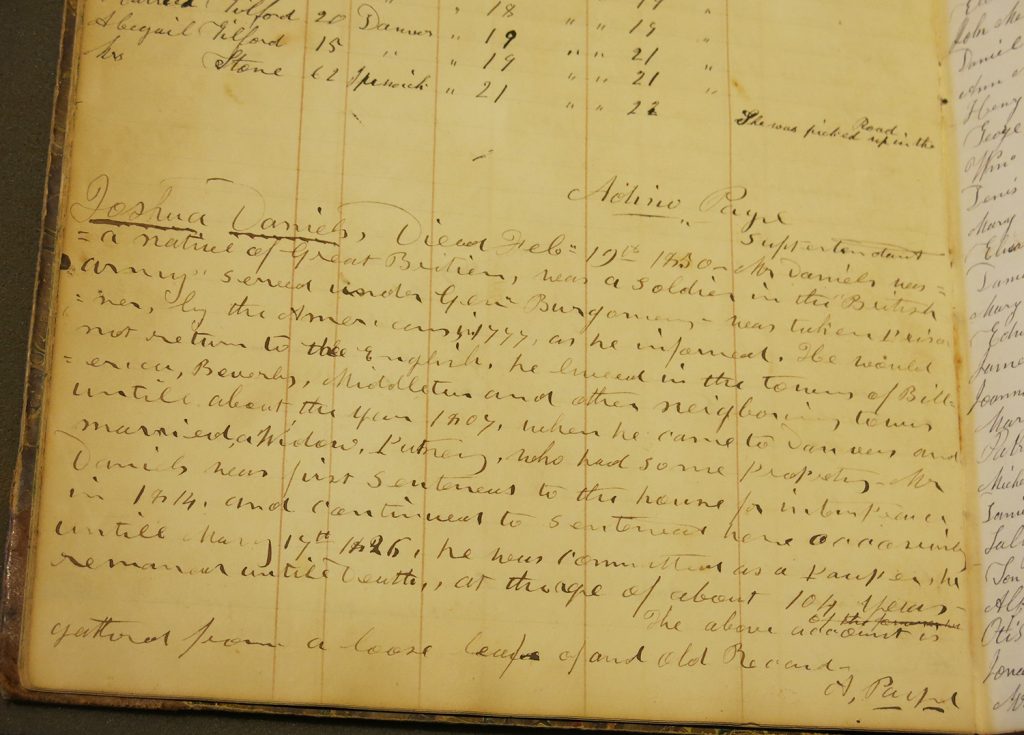 Gilford 20 Danvers " 18 " " 19 "
Abigail Gilford 15 " " 19 " " 21 "
Mrs Stone 62 Ipswich " 21 " " 22
She was picked up in the Road
Supertendant
Joshua Daniels, Died Feb= 19th 1830 - Mr Daniels was=
= a native of Great Britien, was a soldier in the British
army served under Gen Burgoney - was taken Priso
= ner, by the Americans in 1777, as he informed. He would
not return to the English, he lived in the towns of Bill=
= erica, Beverly, Middleton and other neighboring towns
untill about the year 1807, when he came to Danvers and
married, a Widow, Putney, who had some Property - Mr
Daniels was first Sentenced to the house for
in 1814, and continued to Sentenced here
untill May 17th 1826, he was committed as a Pauper, he
remained untill Death, at the age of about 104 years -
The above account is
gathered from a loose leaf of and old Record -
A, Payne
John
Daniel
Ann
Henry
George
Wm
Mary
James
Mary
James
Otis